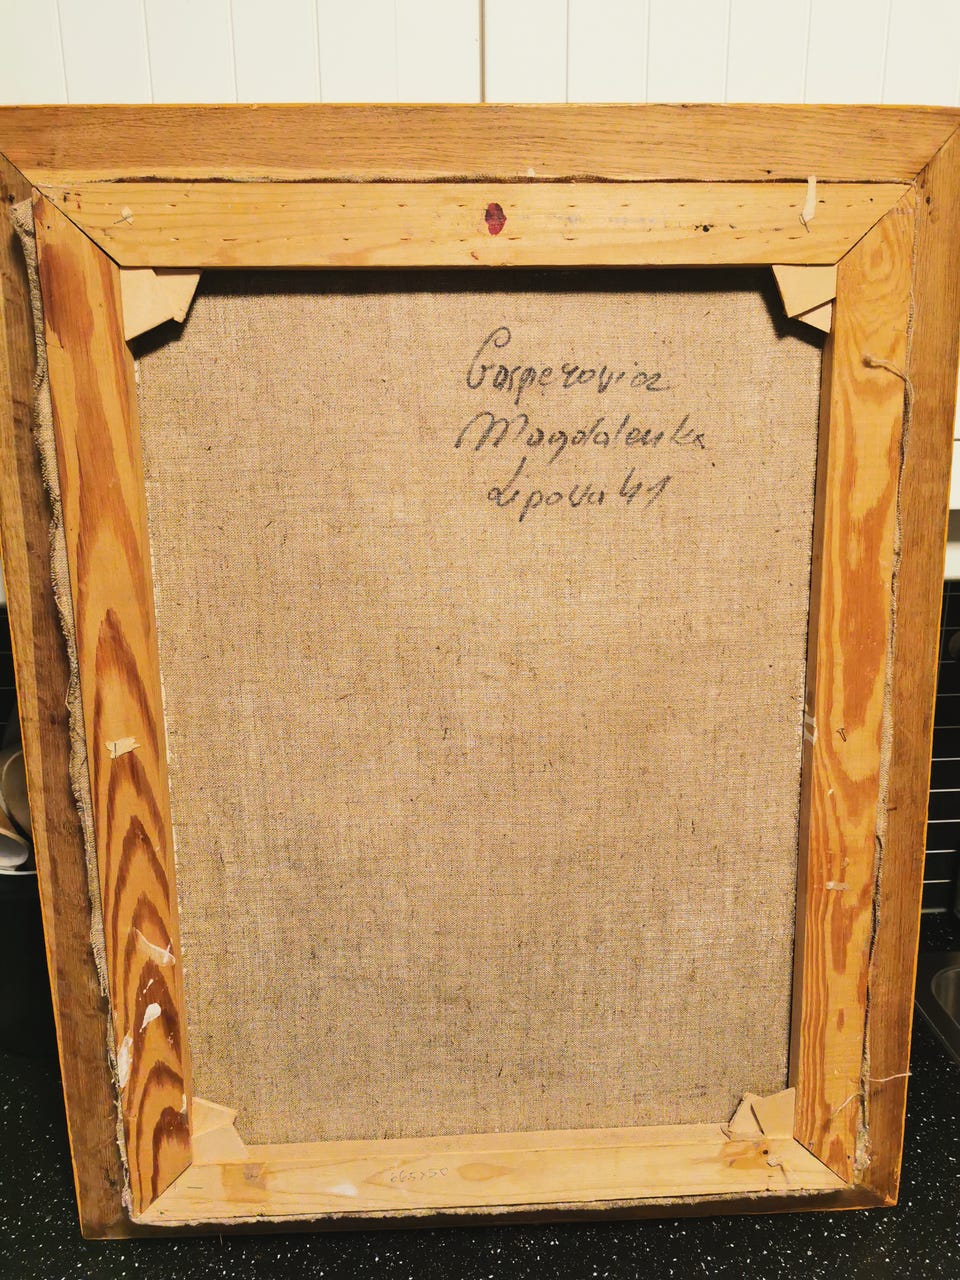 Gasperowicz
Magdalenka
Lipowa 41
65x50